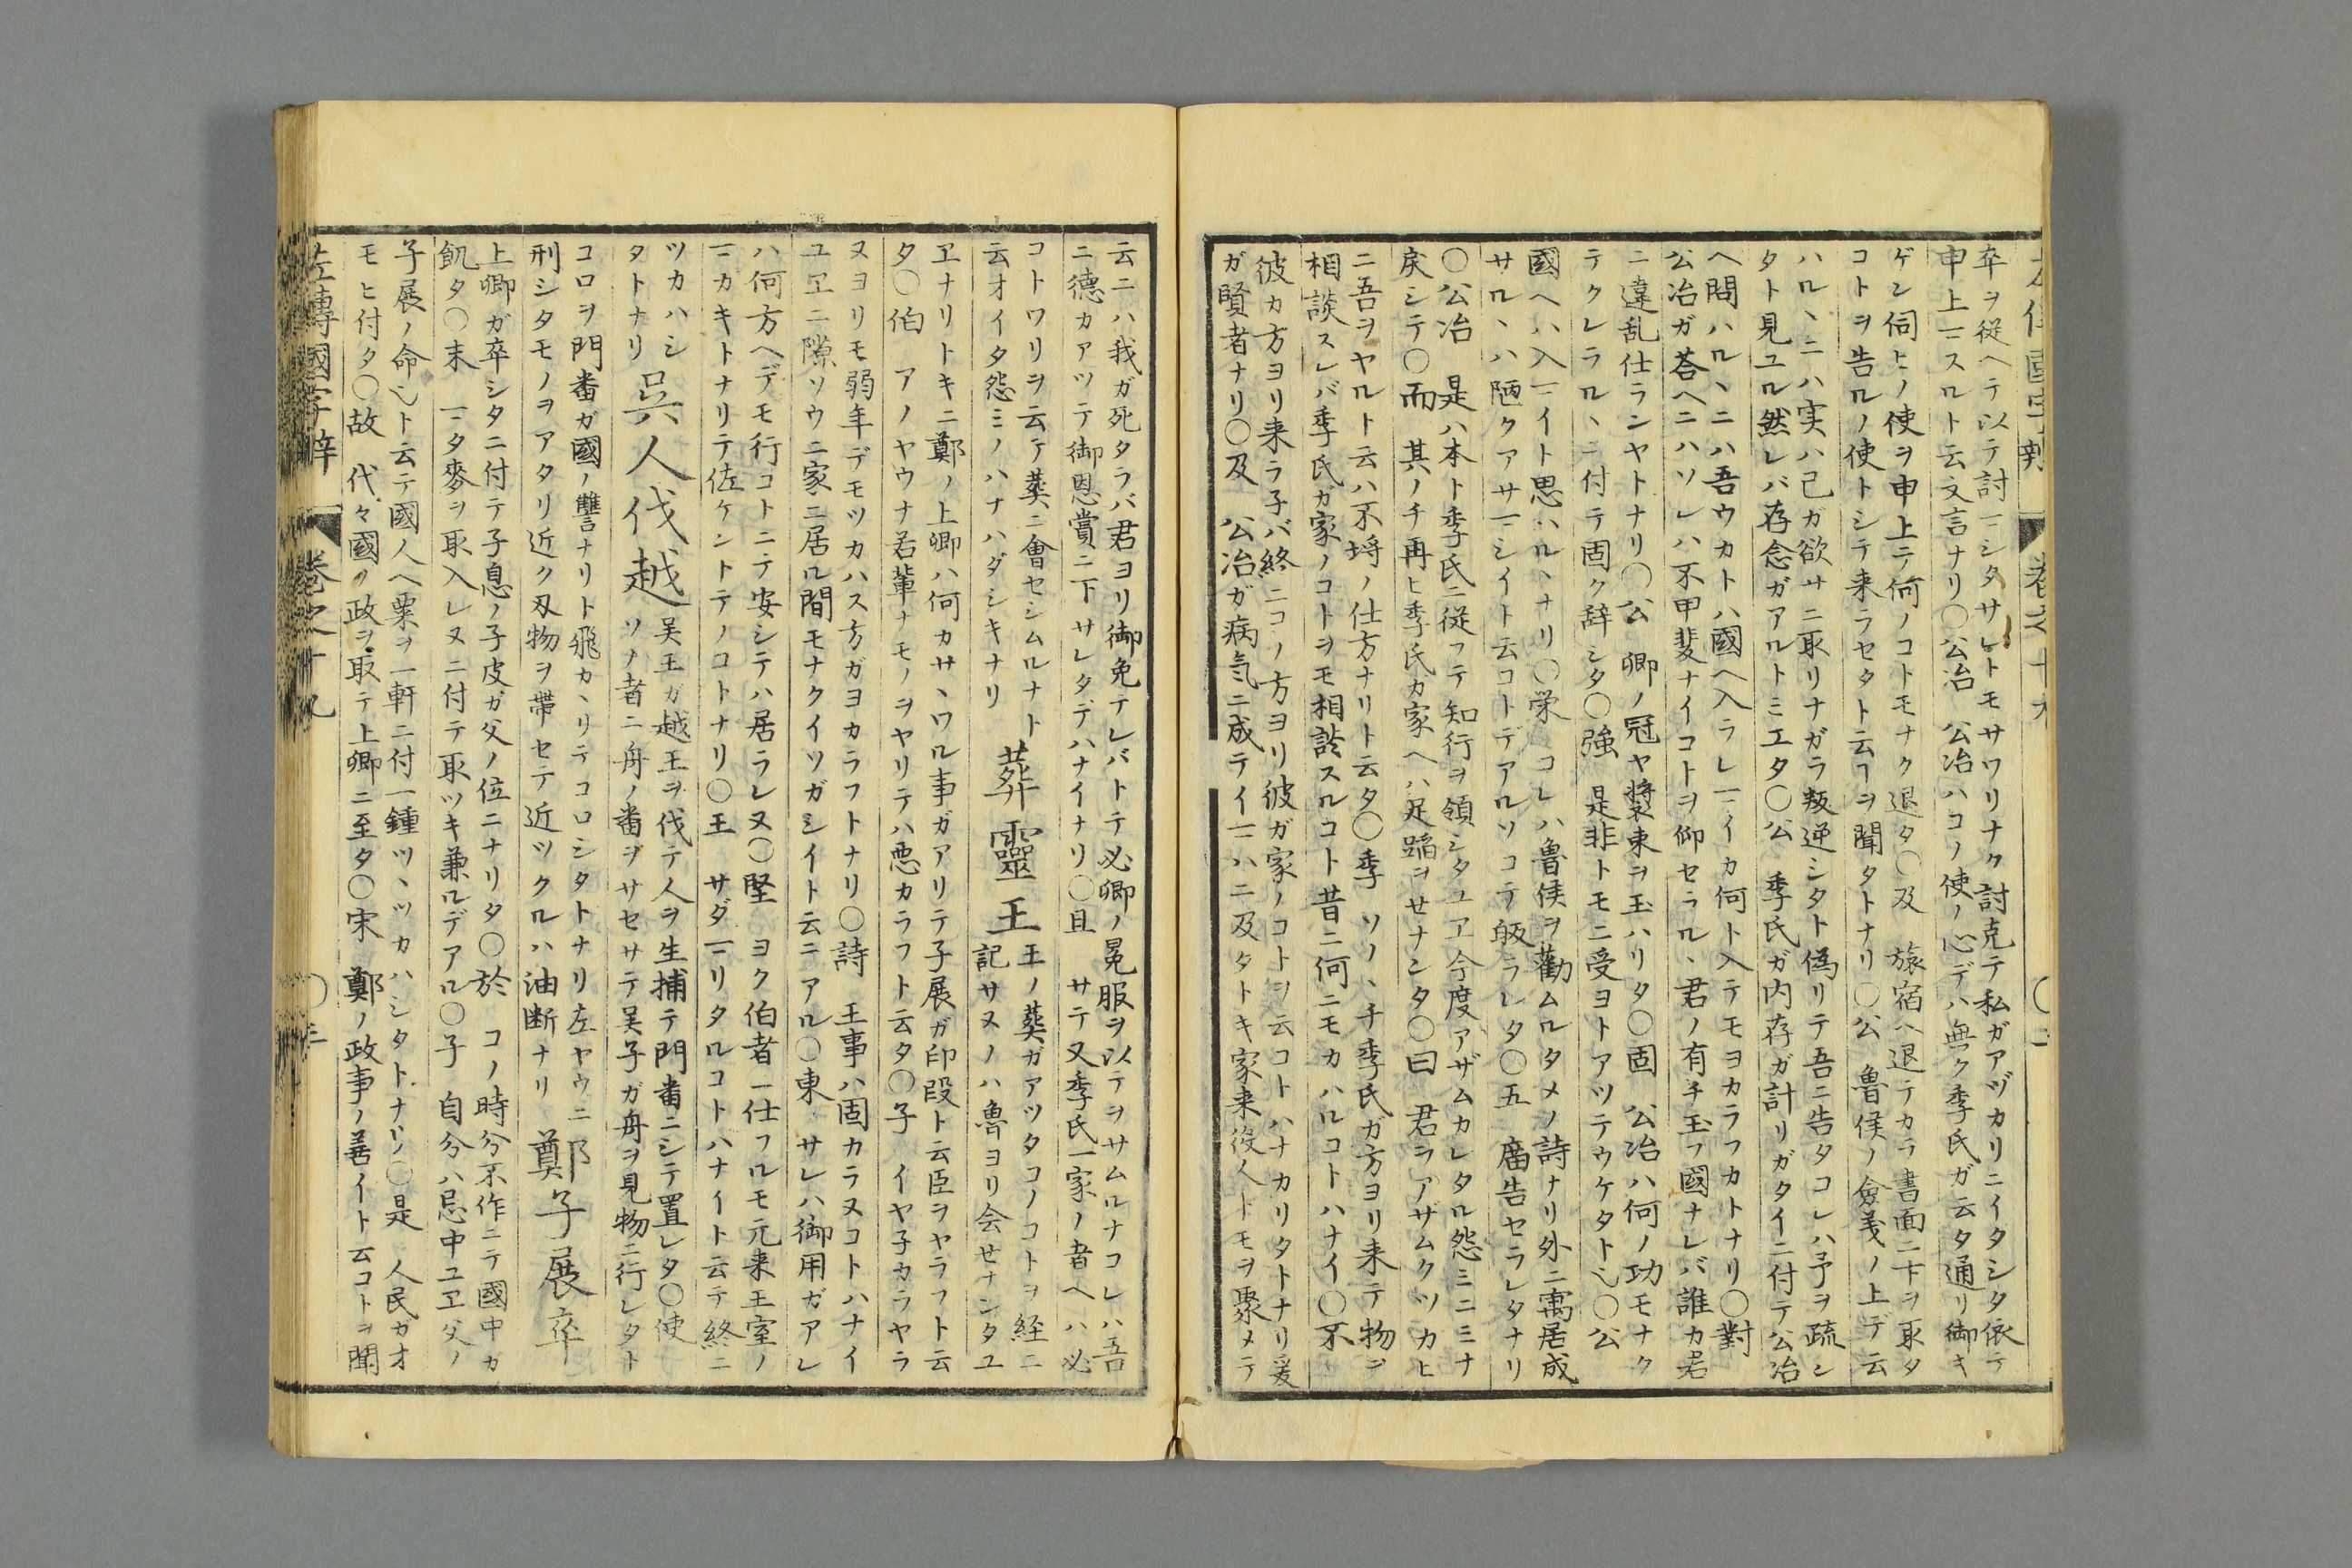 卒ヲ従ヘテ以テ討一シタサレトモサワリナク討克テ私ガアヅカリニイタシタ依テ
申上一スルト云文言ナリ〇公冶　公冶ハコノ使ノ心デハ無ク季氏ガ云タ通リ御キ
ゲン伺ヒノ使ヲ申上テ何ノコトモナク退タ〇及　旅宿ヘ退テカラ書面ニ卞ヲ取タ
コトヲ告ルノ使トシテ来ラセタト云ヿヲ聞タトナリ〇公　魯侯ノ僉義ノ上デ云
ハルヽニハ実ハ己カ欲サニ取リナガラ叛逆シタト偽リテ吾ニ告タコレハ予ヲ疏シ
タト見ユル然レバ存念ガアルトミエタ〇公　季氏ガ内存ガ計リガタイニ付テ公冶
ヘ問ハルヽニハ吾ウカトハ國ヘ入ラレ一イカ何ト入テモヨカラフカトナリ〇對
公冶ガ荅ヘニハソレハ不甲斐ナイコトヲ仰セラルヽ君ノ有チ玉フ國ナレバ誰カ君
ニ違乱仕ランヤトナリ〇公　卿ノ冠ヤ裝束ヲ玉ハリタ〇固　公冶ハ何ノ功モナク
テクレラルヽニ付テ固ク辞シタ〇強　是非トモニ受ヨトアツテウケタト乀〇公
國ヘハ入一イト思ハルヽナリ〇栄　コレハ魯侯ヲ勸ムルタメノ詩ナリ外ニ寓居成
サルヽハ陋クアサ一シイト云コトデアルソコテ皈ラレタ〇五　廣告セラレタナリ
〇公冶　是ハ本ト季氏ニ従フテ知行ヲ領シタユヱ今度アザムカレタル怨ミニミナ
戻シテ〇而　其ノチ再ヒ季氏カ家ヘハ足蹈ヲせナンタ〇曰　君ヲアザムクツカヒ
ニ吾ヲヤルト云ハ不埒ノ仕方ナリト云タ〇季　ソノヽチ季氏ガ方ヨリ来テ物ヲ
相談スレバ季氏ガ家ノコトヲモ相談スルコト昔ニ何ニモカハルコトハナイ〇不
彼カ方ヨリ来ラ子バ終ニコノ方ヨリ彼ガ家ノコトヲ云コトハナカリタトナリ爰
ガ賢者ナリ〇及　公冶ガ病気ニ成テイ一ハニ及タトキ家来役人トモヲ聚メテ
云ニハ我ガ死タラバ君ヨリ御免ナレバトテ必卿ノ冕服ヲ以テヲサムルナコレハ吾
ニ德カアツテ御恩賞ニ下サレタデハナイナリ〇且　サテ又季氏一家ノ者ヘハ必
コトワリヲ云テ葬ニ會セシムルナト
云オイタ怨ミノハナハダシキナリ
葬靈王
王ノ葬ガアツタコノコトヲ経ニ
記サヌノハ魯ヨリ会せナンタユ
ヱナリトキニ鄭ノ上卿ハ何カサヽワル事ガアリテ子展ガ印段ト云臣ヲヤラフト云
タ〇伯　アノヤウナ若輩ナモノヲヤリテハ悪カラフト云タ〇子　イヤ子カラヤラ
ヌヨリモ弱年デモツカハス方ガヨカラフトナリ〇詩　王事ハ固カラヌコトハナイ
ユヱニ隙ソウニ家ニ居ル間モナクイソガシイト云ニアル〇東　サレハ御用ガアレ
ハ何方ヘデモ行コトニテ安シテハ居ラレヌ〇堅　ヨク伯者一仕フルモ元来王室ノ
一カキトナリテ佐ケントテノコトナリ〇王　サダ一リタルコトハナイト云テ終ニ
ツカハシ
タトナリ
呉人伐越
吴王ガ越王ヲ伐テ人ヲ生捕テ門畨ニシテ置レタ〇使
ソノ者ニ舟ノ畨ヲサセサテ吴子ガ舟ヲ見物ニ行レタト
コロヲ門畨ガ國ノ讐ナリト飛カヽリテコロシタトナリ左ヤウニ
刑シタモノヲアタリ近ク刄物ヲ帶セテ近ツクルハ油断ナリ
鄭子展卒
上卿ガ卒シタニ付テ子息ノ子皮ガ父ノ位ニナリタ〇於　コノ時分不作ニテ國中ガ
飢タ〇未　一タ麥ヲ取入レヌニ付テ取ツキ兼ルデアル〇子　自分ハ忌中ユヱ父ノ
子展ノ命乀ト云テ國人ヘ粟ヲ一軒ニ付一鍾ツヽツカハシタトナリ〇是　人民ガオ
モヒ付タ〇故　代々國ノ政ヲ取テ上卿ニ至タ〇宋　鄭ノ政事ノ善イト云コトヲ聞
左傳國字辯　卷之十九　〇三